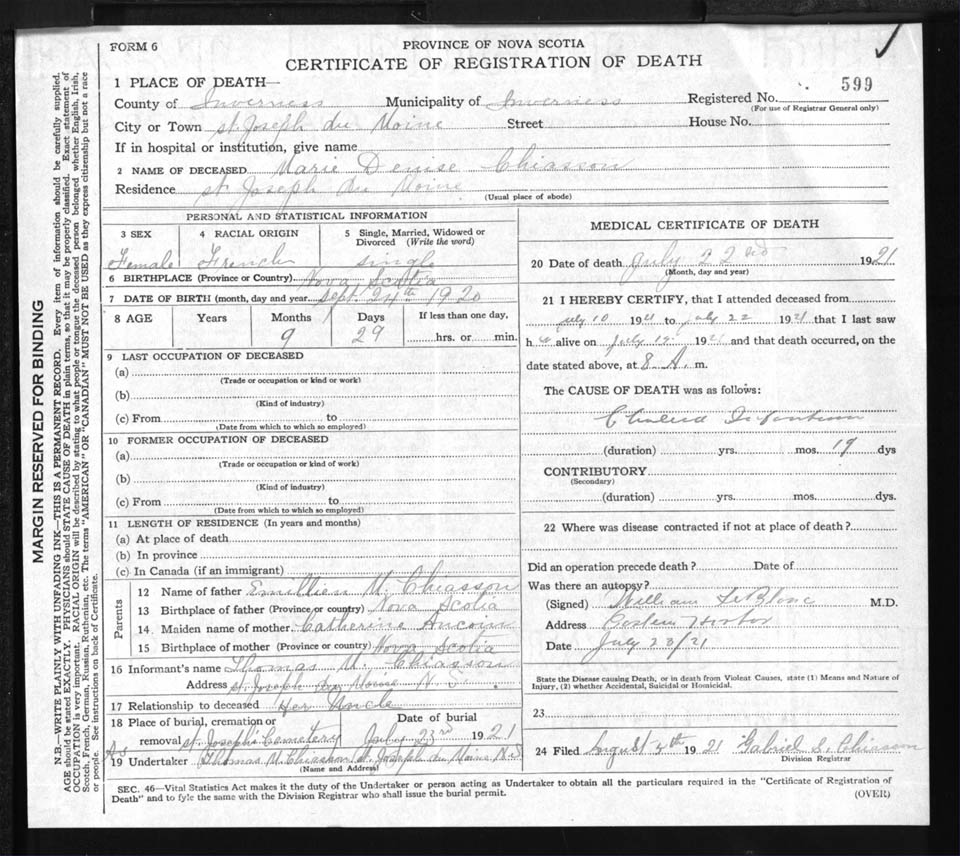 FORM 6
PROVINCE OF NOVA SCOTIA
CERTIFICATE OF REGISTRATION OF DEATH
1 PLACE OF DEATH—
599
County of Inverness Municipality of Inverness Registered No.
(For use of Registrar General only)
City or Town St Joseph du Moine Street House No.
If in hospital or institution, give name
2 NAME OF DECEASED Marie Denise Chiasson
Residence St Joseph du Moine
(Usual place of abode)
PERSONAL AND STATISTICAL INFORMATION
3 SEX 4 RACIAL ORIGIN 5 Single, Married, Widowed or Divorced (Write the word)
Female French single
6 BIRTHPLACE (Province or Country) Nova Scotia
7 DATE OF BIRTH (month, day and year) Sept. 24th 1920
8 AGE Years Months Days If less than one day,
9 29 hrs. or min.
9 LAST OCCUPATION OF DECEASED
(a)
(Trade or occupation or kind or work)
(b)
(Kind of industry)
(c) From to
(Date from which to which so employed)
10 FORMER OCCUPATION OF DECEASED
(a)
(Trade or occupation or kind of work)
(b)
(Kind of industry)
(c) From to
(Date from which to which so employed)
11 LENGTH OF RESIDENCE (In years and months)
(a) At place of death
(b) In province
(c) In Canada (if an immigrant)
Parents
12 Name of father Emillien M. Chiasson
13 Birthplace of father (Province or country) Nova Scotia
14 Maiden name of mother Catherine Aucoin
15 Birthplace of mother (Province or country) Nova Scotia
16 Informant's name Thomas M. Chiasson
Address St. Joseph du Moine N.S.
17 Relationship to deceased Her Uncle
18 Place of burial, cremation or Date of burial
removal St. Joseph's Cemetery July 23rd 1921
19 Undertaker Thomas M. Chiasson St. Joseph du Moine N.S.
(Name and Address)
MEDICAL CERTIFICATE OF DEATH
20 Date of death July 22nd 1921
(Month, day and year)
21 I HEREBY CERTIFY, that I attended deceased from
July 10 1921 to July 22 1921 that I last saw
h alive on July 19 1921 and that death occurred, on the
date stated above, at 8 A. m.
The CAUSE OF DEATH was as follows:
Cholera Infantum
(duration) yrs. mos. 19 dys
CONTRIBUTORY
(Secondary)
(duration) yrs. mos. dys.
22 Where was disease contracted if not at place of death?
Did an operation precede death? Date of
Was there an autopsy?
(Signed) William LeBlanc M.D.
Address Eastern Harbor
Date July 23/21
State the Disease causing Death, or in death from Violent Causes, state (1) Means and Nature of
Injury, (2) whether Accidental, Suicidal or Homicidal.
23
24 Filed August 1921 Gabriel S. Chiasson
Division Registrar
SEC. 46—Vital Statistics Act makes it the duty of the Undertaker or person acting as Undertaker to obtain all the particulars required in the "Certificate of Registration of
Death" and to fyle the same with the Division Registrar who shall issue the burial permit.
(OVER)
MARGIN RESERVED FOR BINDING
N.B.—WRITE PLAINLY WITH UNFADING INK—THIS IS A PERMANENT RECORD. Every item of information should be carefully supplied.
AGE should be stated EXACTLY. PHYSICIANS should STATE CAUSE OF DEATH in plain terms, so that it may be properly classified. Exact statement of
OCCUPATION is very important. RACIAL ORIGIN will be described by stating to what people or tongue the deceased person belonged whether English, Irish,
Scotch, French, German, Russian, Ruthenian, etc. The terms "AMERICAN" OR "CANADIAN" MUST NOT BE USED as they express citizenship but not a race
or people. See instructions on back of Certificate.